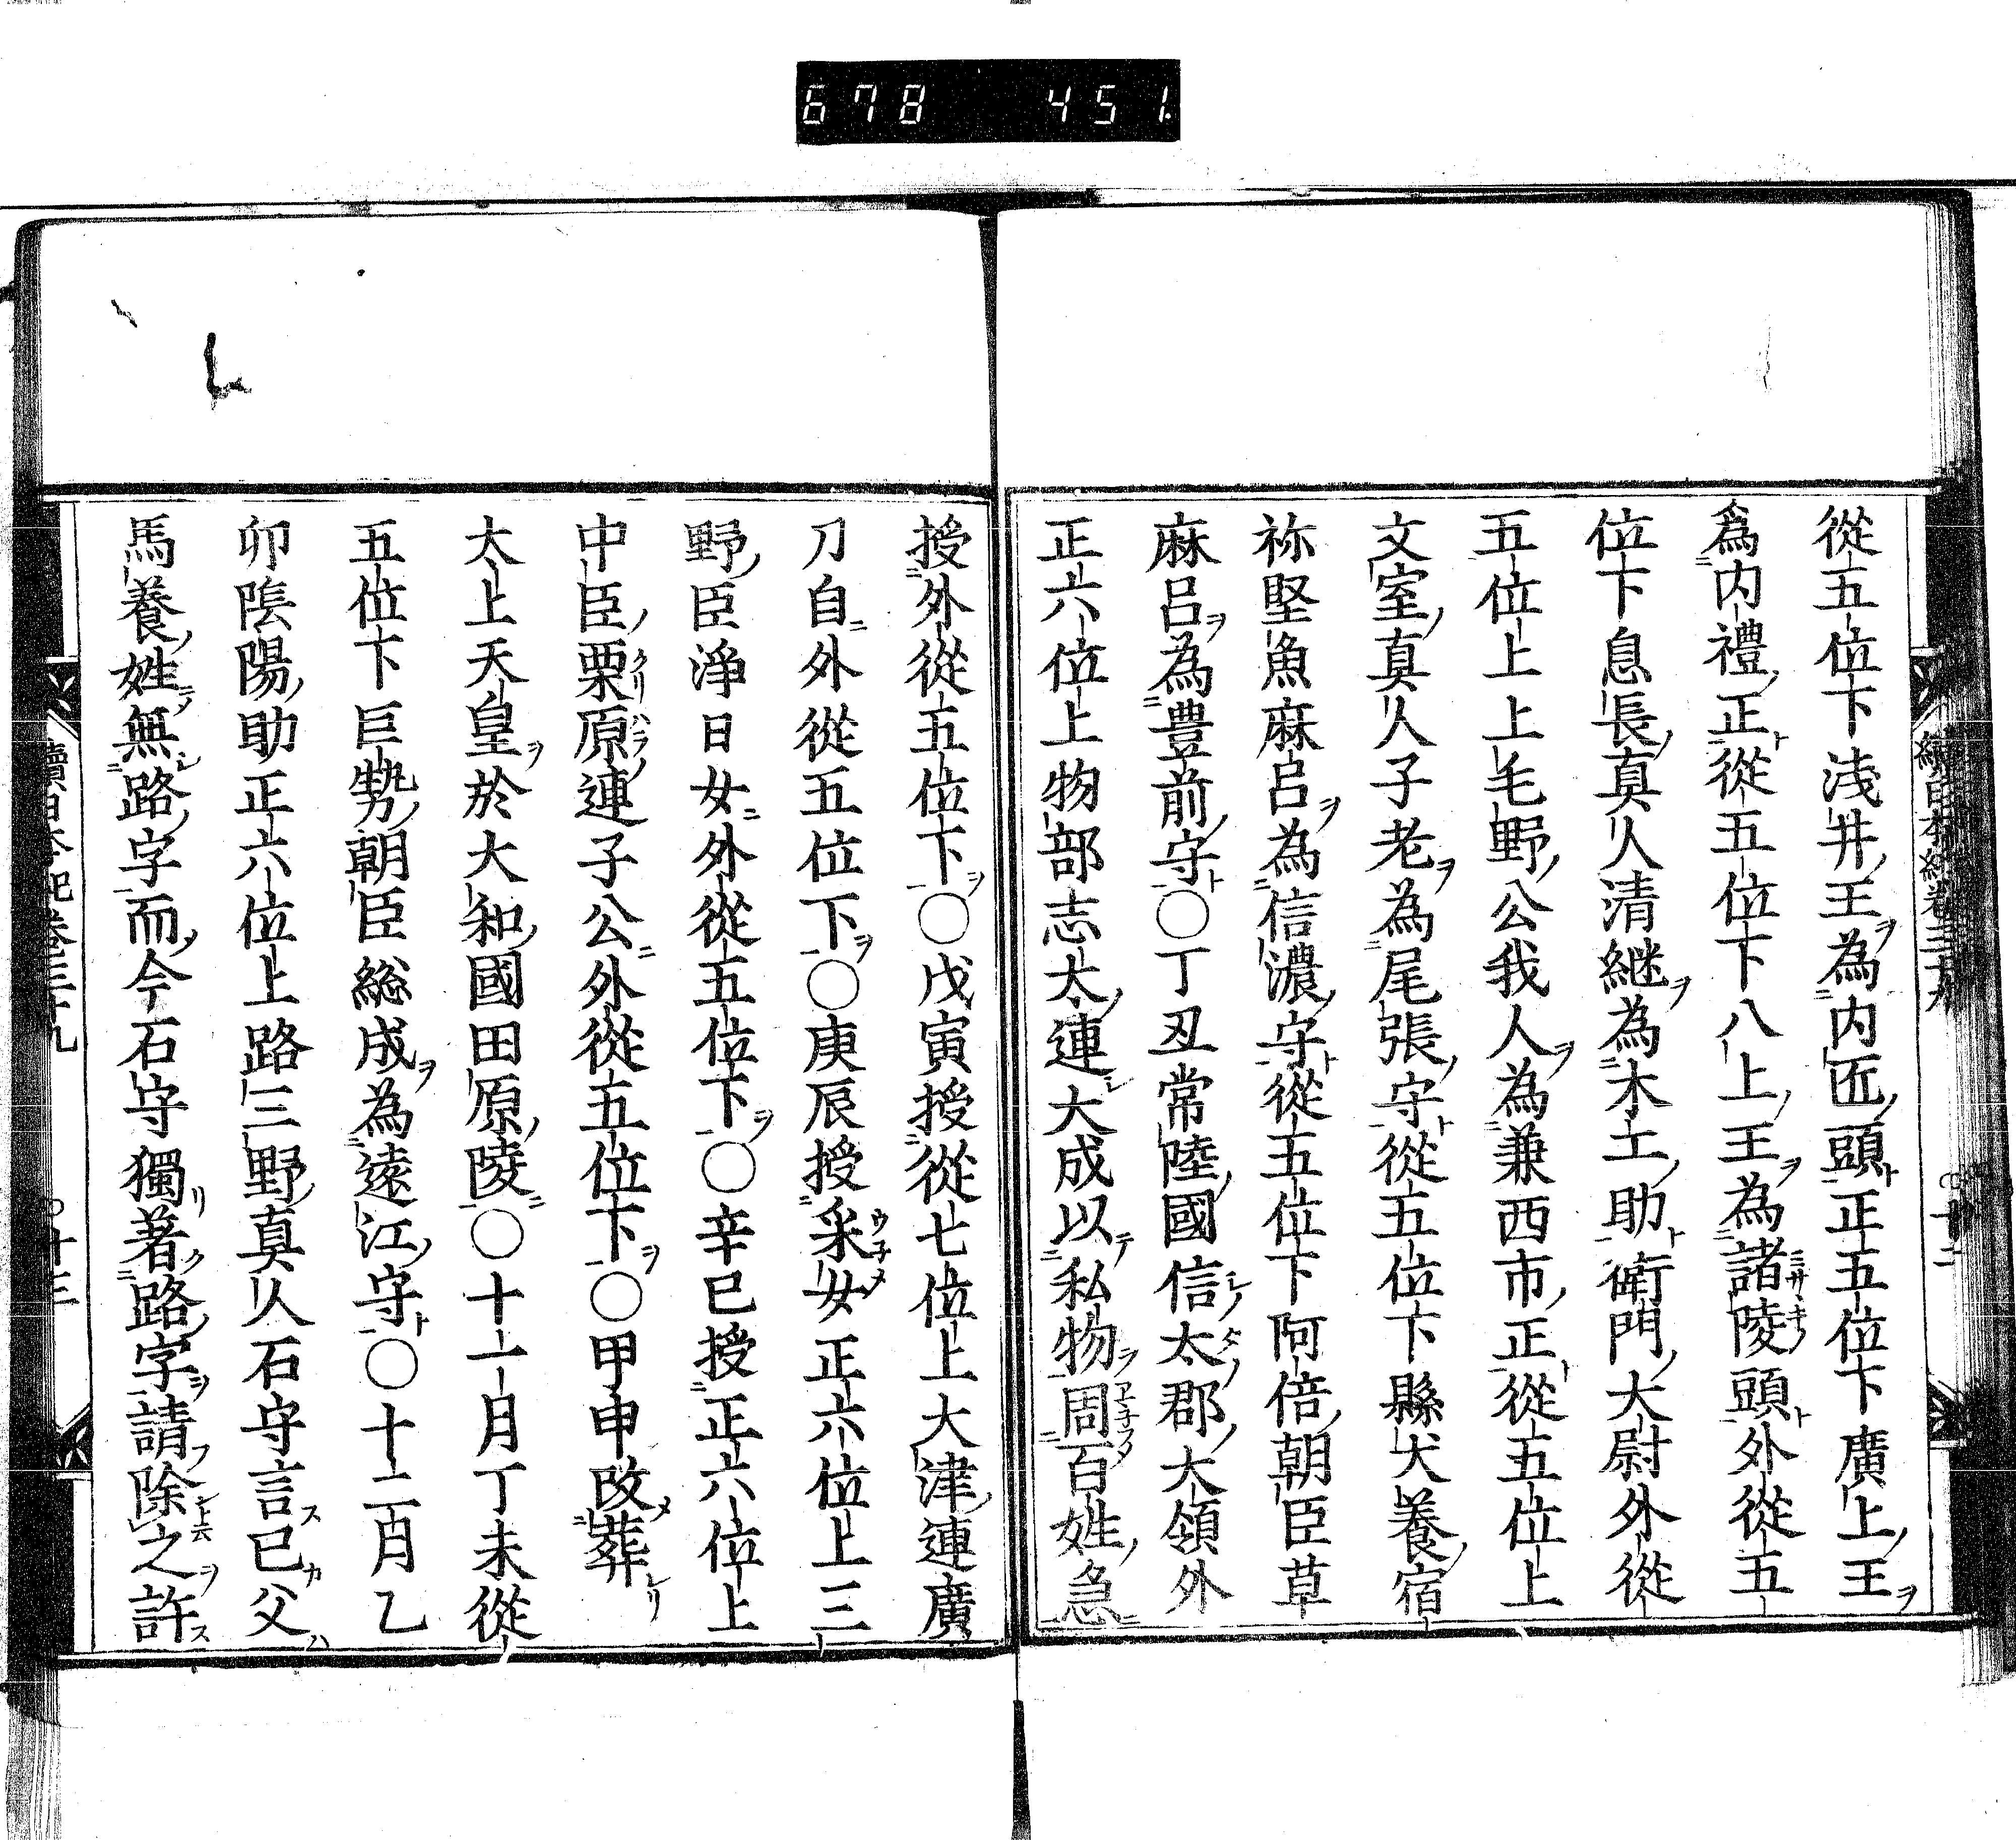 678 451
從五位下淺井王為内匠頭正五位下廣上王
爲内禮正從五位下八上王為諸陵頭外從五
位下息長真人清継為木工助衛門大尉外從
五位上上毛野公我人為兼西市正從五位上
文室真人子老為尾張守從五位下縣犬養宿
祢堅魚麻呂為信濃守從五位下阿倍朝臣草
麻呂為豊前守○丁丑常陸國信太郡大領外
正六位上物部志太連大成以私物周百姓急
授外從五位下○戊寅授從七位上大津連廣
刀自外從五位下○庚辰授采女正六位上三
野臣淨日女外從五位下○辛巳授正六位上
中臣栗原連子公外從五位下○甲申改葬
太上天皇於大和國田原陵○十一月丁未從
五位下巨勢朝臣総成為遠江守○十二月乙
卯陰陽助正六位上路三野真人石守言己父
馬養姓無路字而今石守獨著路字請除之許
續日本紀卷三十九 十三